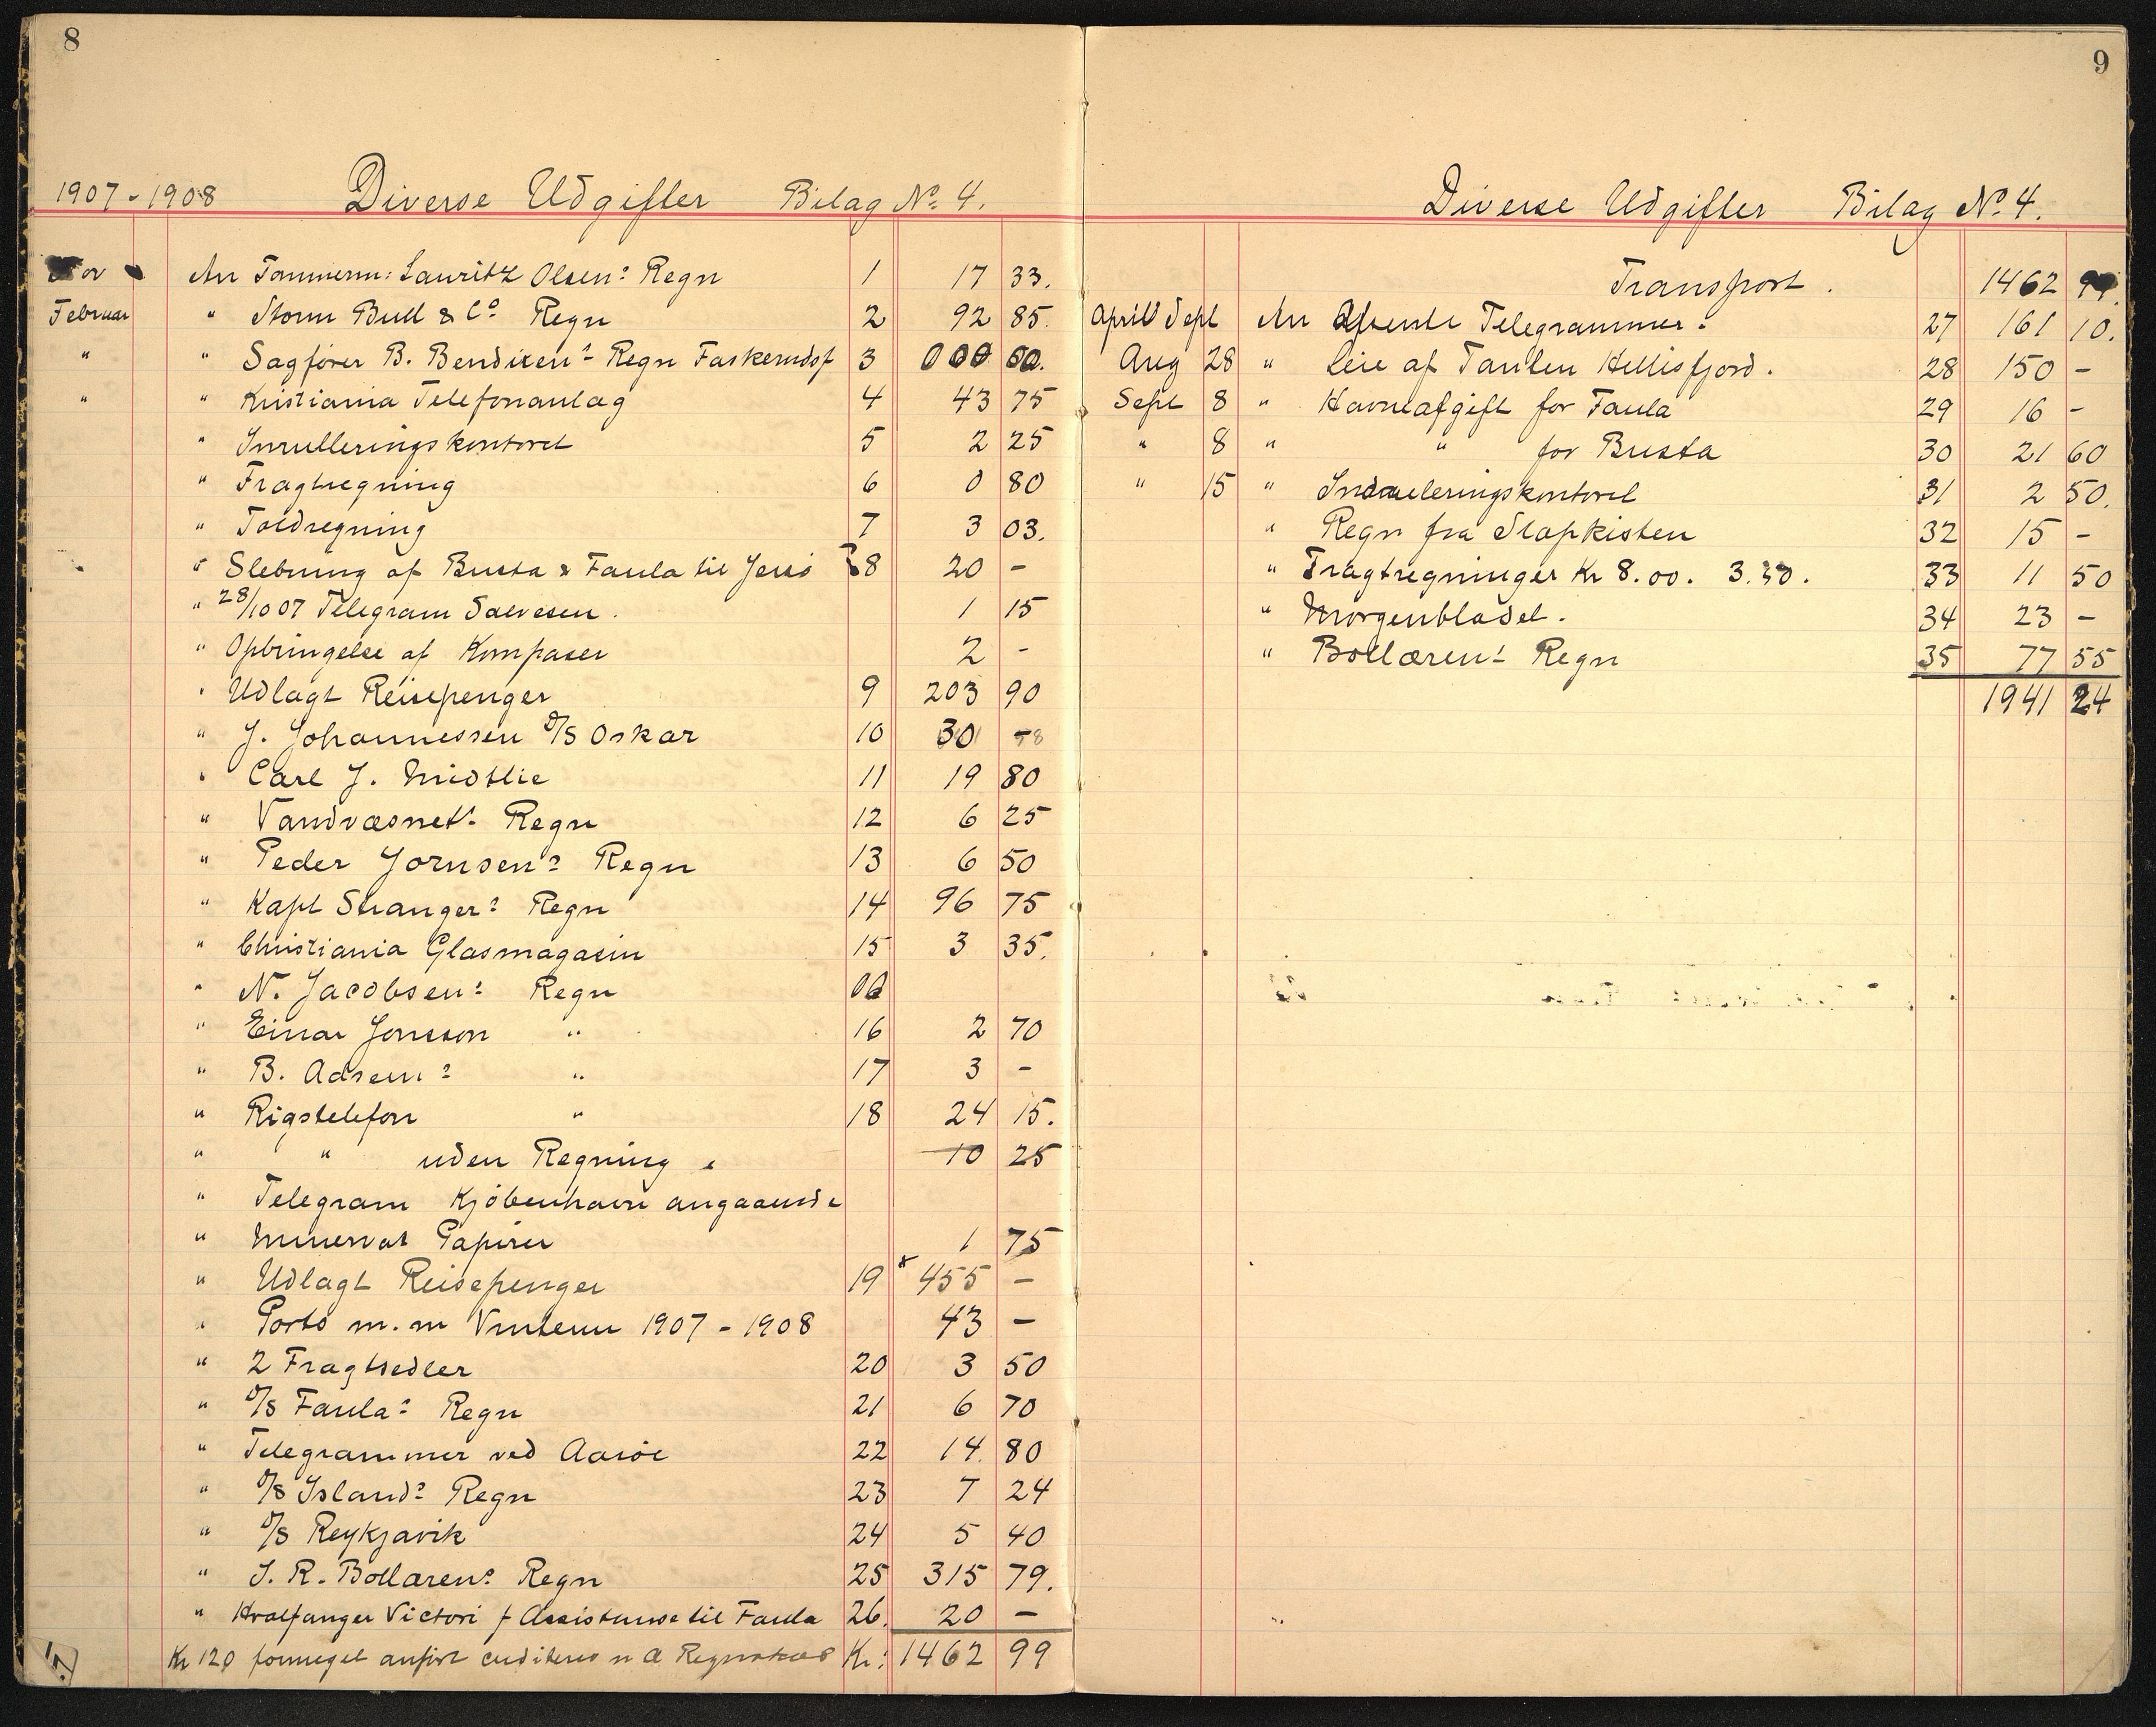 8
1907-1908 Diverse Udgifter Bilag No. 4.
An Tømmerm: Lauritz Olsens Regn 1 17 33.
Februar " Storm Bull & Co Regn 2 92 85.
" " Sagfører B. Bendixens Regn 3
" " Kristiania Telefonanlæg 4 43 75
" Inrulleringskontoret 5 2 25
" Fragtregning 6 0 80
" Toldregning 7 3 03.
" Slebning af Busta & Faula til Jersø 8 20 -
" 28/10 07 Telegram Salvesen. 1 15
" Opbringelse af Kompaser 2 -
" Udlagt Reisepenger 9 203 90
" J. Johannessen D/S Oskar 10 30
" Carl J. Midtlie 11 19 80
" Vandvæsnets Regn 12 6 25
" Peder Jornsens Regn 13 6 50
" Kapt Strangers Regn 14 96 75
" Christiania Glasmagasin 15 3 35.
" N. Jacobsens Regn
" Einar Jonsson " 16 2 70
" B. 17 3 -
" Rigstelefon " 18 24 15.
" " uden Regning 10 25
" Telegram Kjøbenhavn angaaende
" Minervas Papirer 1 75
" Udlagt Reisepenger 19 455 -
" Porto m.m Vinteren 1907-1908 43 -
" 2 Fragtsedler 20 3 50
" D/S Faulas Regn 21 6 70
" Telegrammer ved Aarøe 22 14. 80
" D/S Islands Regn 23 7 24
" D/S Reykjavik 24 5 40
" J. R. Bollærens Regn 25 315 79.
" Hvalfanger Victori f Assistanse til Faula 26. 20 -
Kr 120 formeget anført Kr: 1462 99
9
Diverse Udgifter Bilag No. 4.
Transport. 1462
April Sept An Afsendte Telegrammer. 27 161 10.
Aug 28 " Leie af Tomten Hellisfjord. 28 150 -
Sept 8 " Havneafgift for Faula 29 16 -
" 8 " " for Busta 30 21 60
" 15 " 31 2 50.
" Regn fra Slopkisten 32 15 -
" Fragtregninger Kr 8.00. 3.50. 33 11 50
" Morgenbladet. 34 23 -
" Bollærens Regn 35 77 55
1941 24